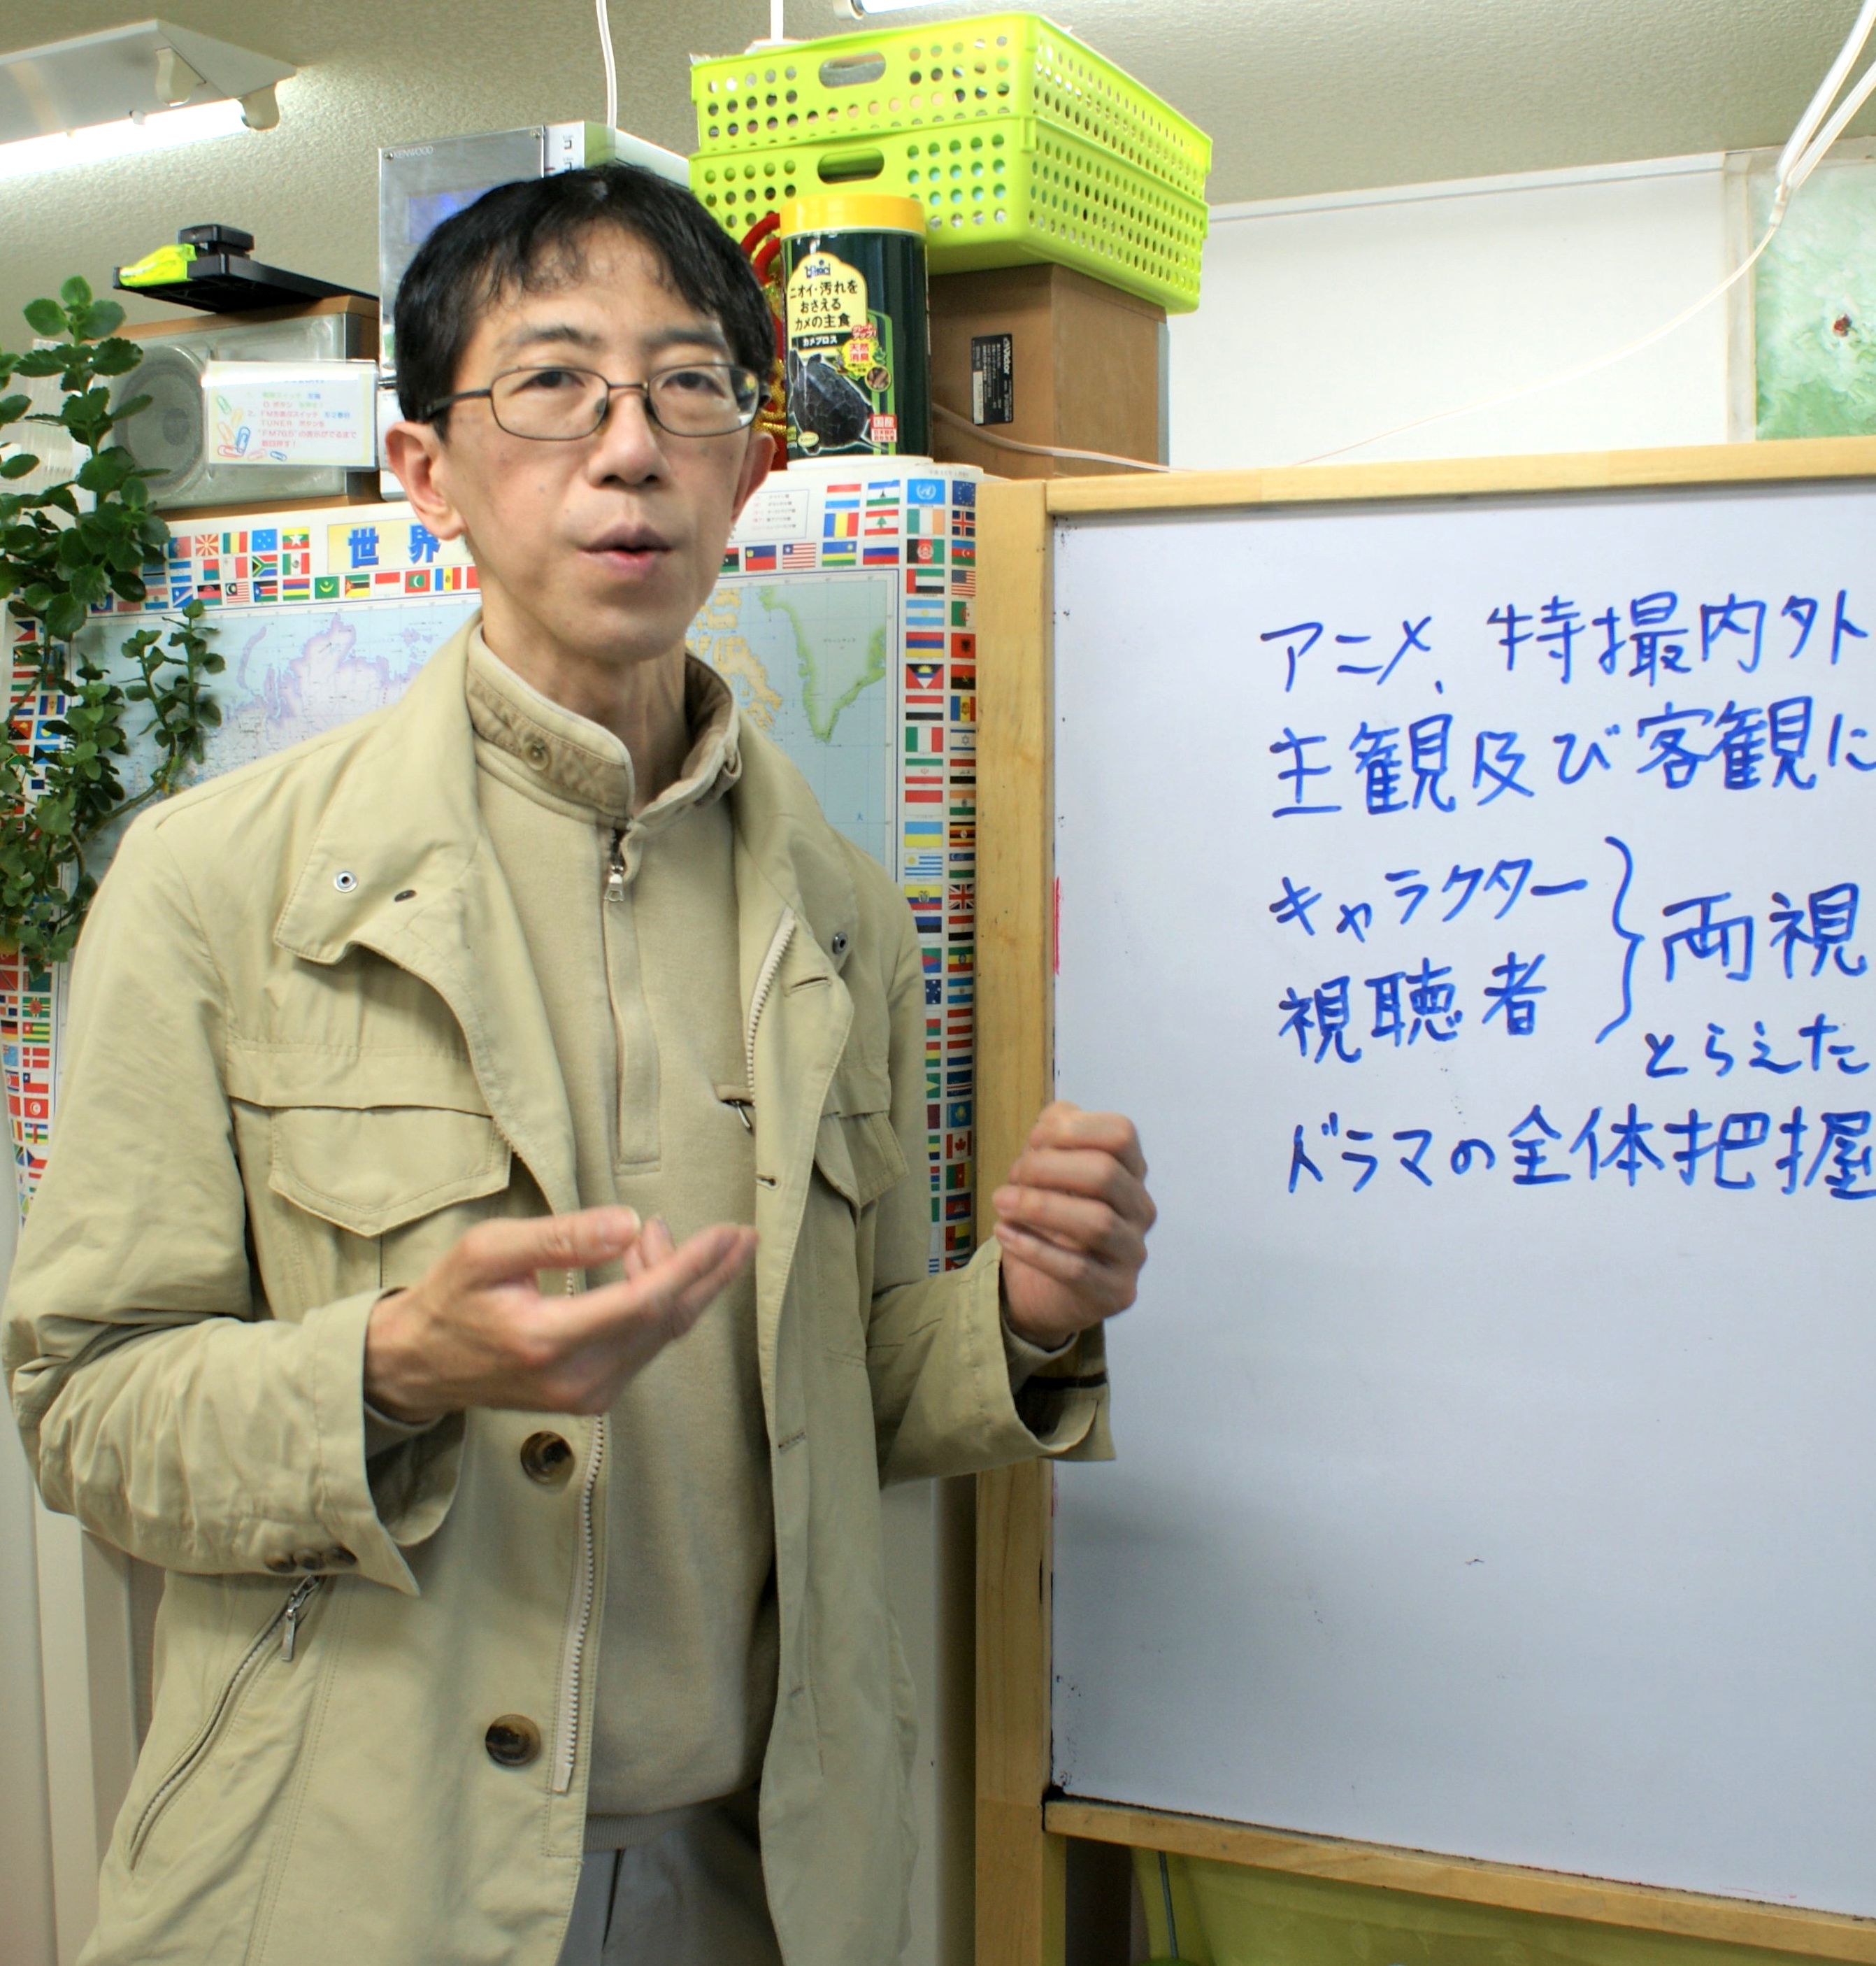 KENWOOD
ニオイ・汚れを
おさえる
カメの主食
カメプロス
天然
消臭
国産
Victor
TUNER ボタンを
世界
アニメ、特撮内外
主観及び客観に
キャラクター
視聴者
両視
とらえた
ドラマの全体把握